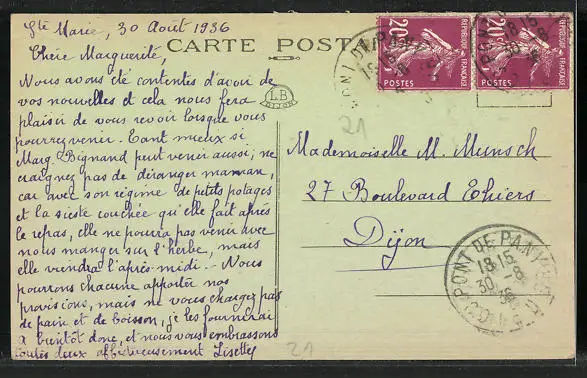 Ste Marie, 30 Août 1936
CARTE POSTALE
Chère Marguerite,
Nous avons été contentes d'avoir de
vos nouvelles et cela nous fera
plaisir de vous revoir lorsque vous
pourrez venir. Tant mieux si
Marg. Bignand peut venir aussi; ne
craignez pas de déranger maman,
car avec son régime de petits potages
et la sieste couchée qu'elle fait après
le repas, elle ne pourra pas venir avec
nous manger sur l'herbe, mais
elle viendra l'après-midi. Nous
pourrons chacune apporter nos
provisions, mais ne vous chargez pas
de pain et de boisson, je les fournirai
à bientôt donc, et nous vous embrassons
toutes deux affectueusement Lisette
LB
DIJON
20c
POSTES
RÉPUBLIQUE FRANÇAISE
20c
POSTES
RÉPUBLIQUE FRANÇAISE
18 15
30 -8
21
Mademoiselle M. Munsch
27 Boulevard Thiers
Dijon
PONT DE PANY
18 15
30 -8
21